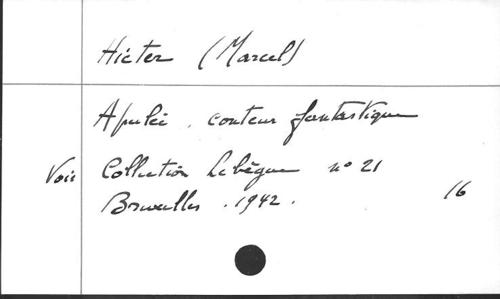 Hicter (Marcel)
Apulée . conteur fantastique
Voir Collection Lebègue n° 21
Bruxelles . 1942 . 16